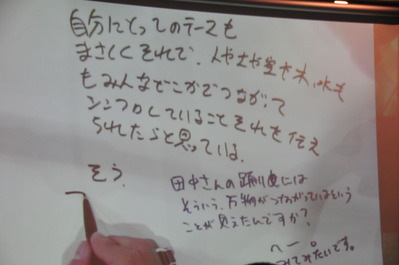 自分にとってのテーマも
まさしくそれで、人や土や空や木、水も
もみんなどこかでつながって
シンクロしていることそれを伝え
られたらと思っている。
そう、
田中さんの踊りには
そういう、万物がつながっているという
ことが見えたんですか？
へー。
みたいです。